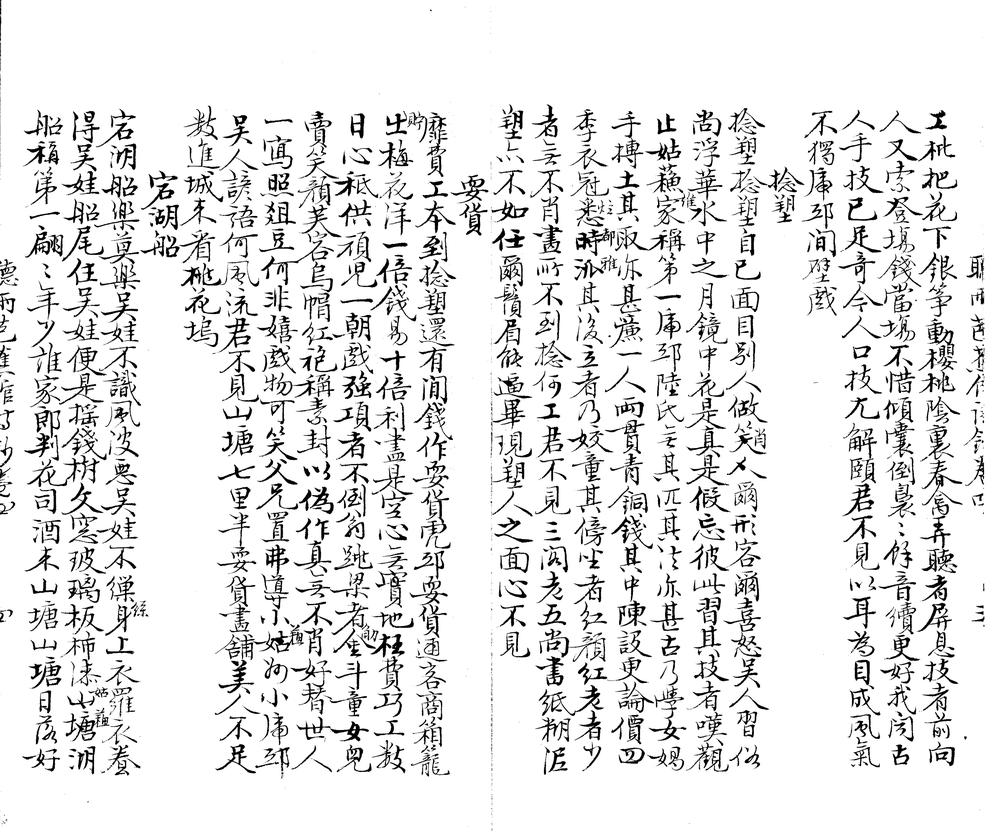 工枇杷花下銀箏動櫻桃陰裏春禽弄聽者屏息技者前向
人又索登場錢當場不惜傾囊倒裊〻餘音續更好我聞古
人手技已足奇今人口技尤解頤君不見以耳為目成風氣
不獨虎邱間壁戲
捻塑
捻塑捻塑自己面目別人做笑肖人爾形容爾喜怒吳人習俗
尚浮華水中之月鏡中花是真是假忘彼此習其技者嘆觀
止姑蘓家稱第一虎邱陸氏無其匹其法亦甚古乃學女媧
手摶土其取亦甚廉一人兩貫青銅錢其中陳設更論價四
季衣冠悉時派其後立者乃姣童其傍坐者紅顏紅老者少
者無不肖畫所不到捻何工君不見三閣老五尚書紙糊泥
塑亦不如任爾鬚眉能逼畢現塑人之面心不見
耍貨
靡費工本到捻塑還有閒錢作耍貨虎邱耍貨通客商箱籠
貯出梅花洋一倍錢易十倍利盡是空心無實地枉費巧工數
日心秪供頑兒一朝戲強項者不倒翁跳梁者觔斗童女兒
賣笑顏芙容烏帽紅袍稱素封以偽作真無不肖好替世人
一寫照爼豆何非嬉戲物可笑父兄置弗導小姑蘓小虎邱
吳人諺語何風流君不見山塘七里半耍貨盡舖美人不足
數進城來看桃花塢
宕湖船
宕湖船樂莫樂吳娃不識風波惡吳娃不繅絲身上衣羅衣養
得吳娃船尾住吳娃便是揺錢樹欠窓玻璃板柿漆姑蘓山塘湖
船稱第一翩〻年少誰家郎判花司酒來山塘山塘日落好